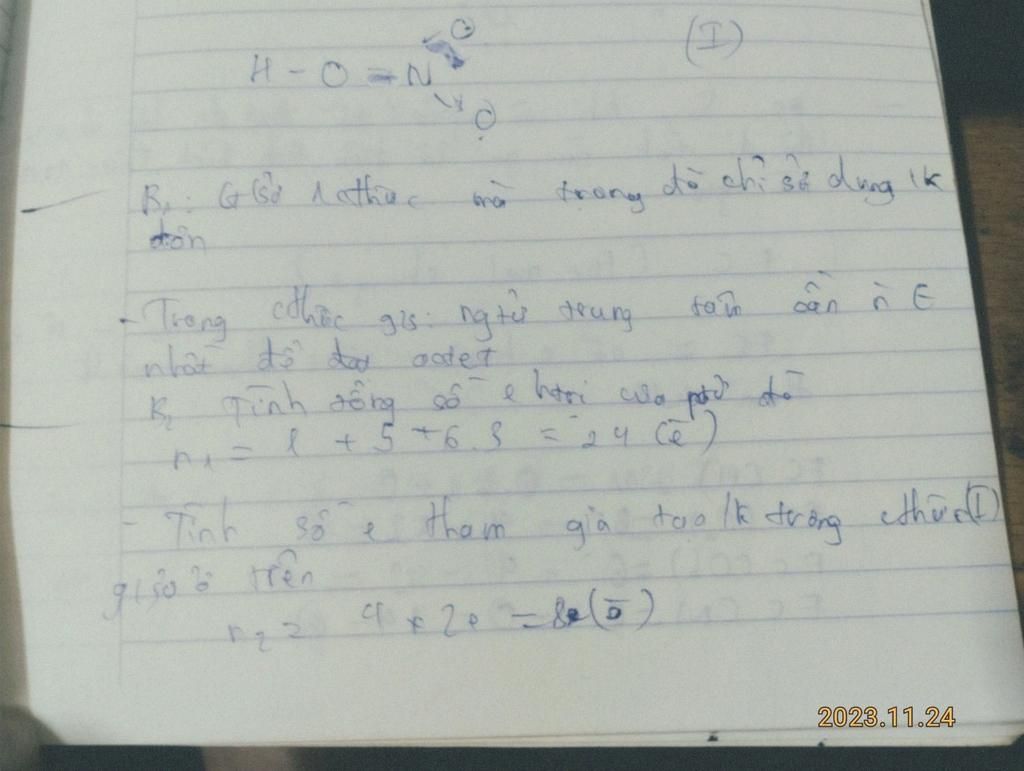 O (I)
H - O - N
O
B₁: Gsử 1 cthức mà trong đó chỉ sử dụng lk
đơn
- Trong cthức gs: ngtử trung tâm cần ít E
nhất để đạt octet
B₂ Tính tổng số e htrị của ptử đó
n₁ = 1 + 5 + 6.3 = 24 (e)
- Tính số e tham gia tạo lk trong cthức (I)
gsử ở trên
n₂ = 4 x 2e = 8e
2023.11.24